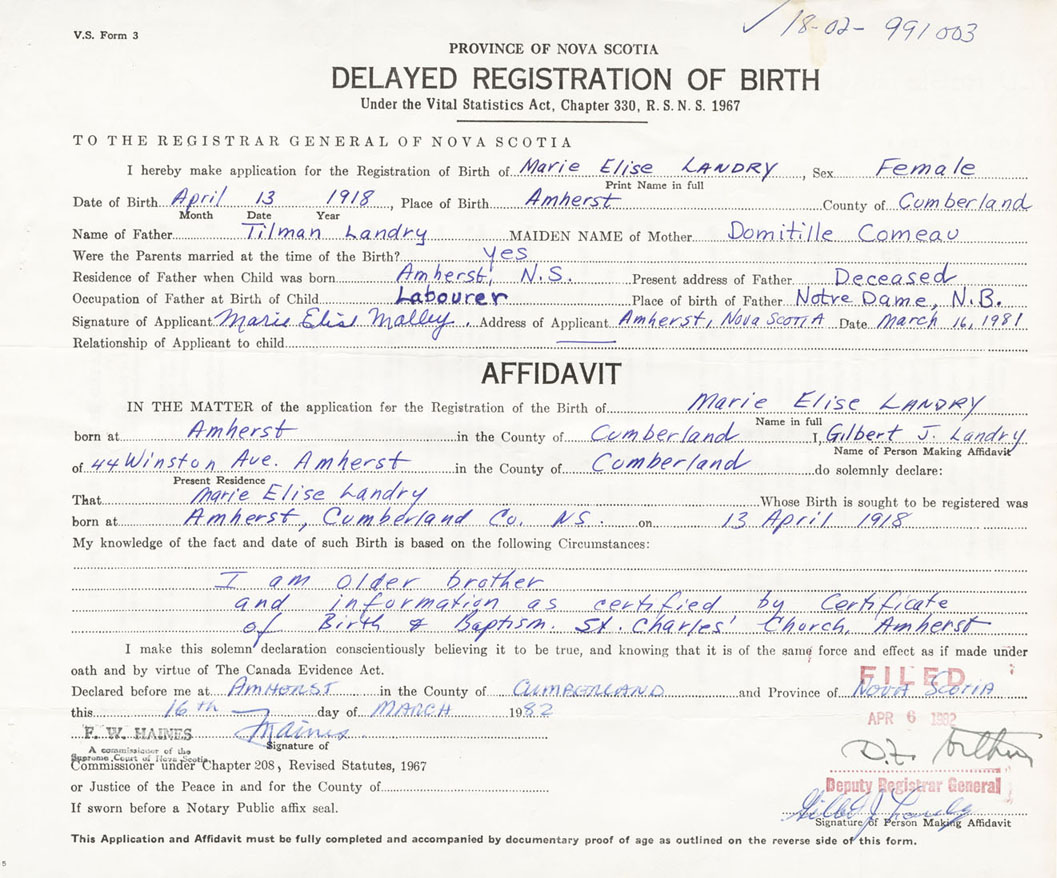 ✓ 18-02-991003
V.S. Form 3
PROVINCE OF NOVA SCOTIA
DELAYED REGISTRATION OF BIRTH
Under the Vital Statistics Act, Chapter 330, R.S.N.S. 1967
TO THE REGISTRAR GENERAL OF NOVA SCOTIA
I hereby make application for the Registration of Birth of Marie Elise LANDRY, Sex Female
Print Name in full
Date of Birth April 13 1918, Place of Birth Amherst County of Cumberland
Month Date Year
Name of Father Tilman Landry MAIDEN NAME of Mother Domitille Comeau
Were the Parents married at the time of the Birth? yes
Residence of Father when Child was born Amherst, N.S. Present address of Father Deceased
Occupation of Father at Birth of Child Labourer Place of birth of Father Notre Dame, N.B.
Signature of Applicant Marie Elise Malley. Address of Applicant Amherst, Nova Scotia Date March 16, 1981
Relationship of Applicant to child
AFFIDAVIT
IN THE MATTER of the application for the Registration of the Birth of Marie Elise LANDRY
Name in full
born at Amherst in the County of Cumberland I, Gilbert J. Landry
Name of Person Making Affidavit
of 44 Winston Ave. Amherst in the County of Cumberland do solemnly declare:
Present Residence
That Marie Elise Landry Whose Birth is sought to be registered was
born at Amherst, Cumberland Co. NS. on 13 April 1918
My knowledge of the fact and date of such Birth is based on the following Circumstances:
I am older brother
and information as certified by Certificate
of Birth & Baptism. St. Charles' Church, Amherst
I make this solemn declaration conscientiously believing it to be true, and knowing that it is of the same force and effect as if made under
oath and by virtue of The Canada Evidence Act.
FILED
Declared before me at AMHERST in the County of CUMBERLAND and Province of NOVA SCOTIA
this 16th day of MARCH 1982
APR 6 1982
F. W. HAINES Haines
A commissioner of the Signature of
Supreme Court of Nova Scotia
Commissioner under Chapter 208, Revised Statutes, 1967
Deputy Registrar General
or Justice of the Peace in and for the County of
If sworn before a Notary Public affix seal.
Gilbert J Landry
Signature of Person Making Affidavit
This Application and Affidavit must be fully completed and accompanied by documentary proof of age as outlined on the reverse side of this form.
5